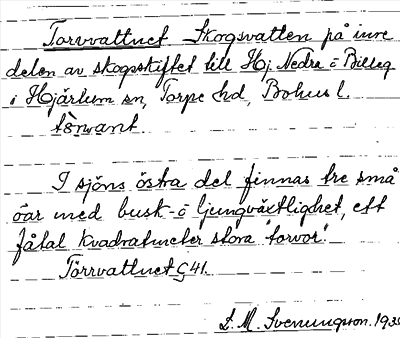 Torvvattnet Skogsvatten på inre
delen av skogsskiftet till Hj. Nedra o Billeg
i Hjärtum sn, Torpe hd, Bohus l.
törvant.
I sjöns östra del finnas tre små
öar med busk- o ljungväxtlighet, ett
fåtal kvadratmeter stora "torvor".
Törrvattnet G 41.
D. M. Svenungson. 193